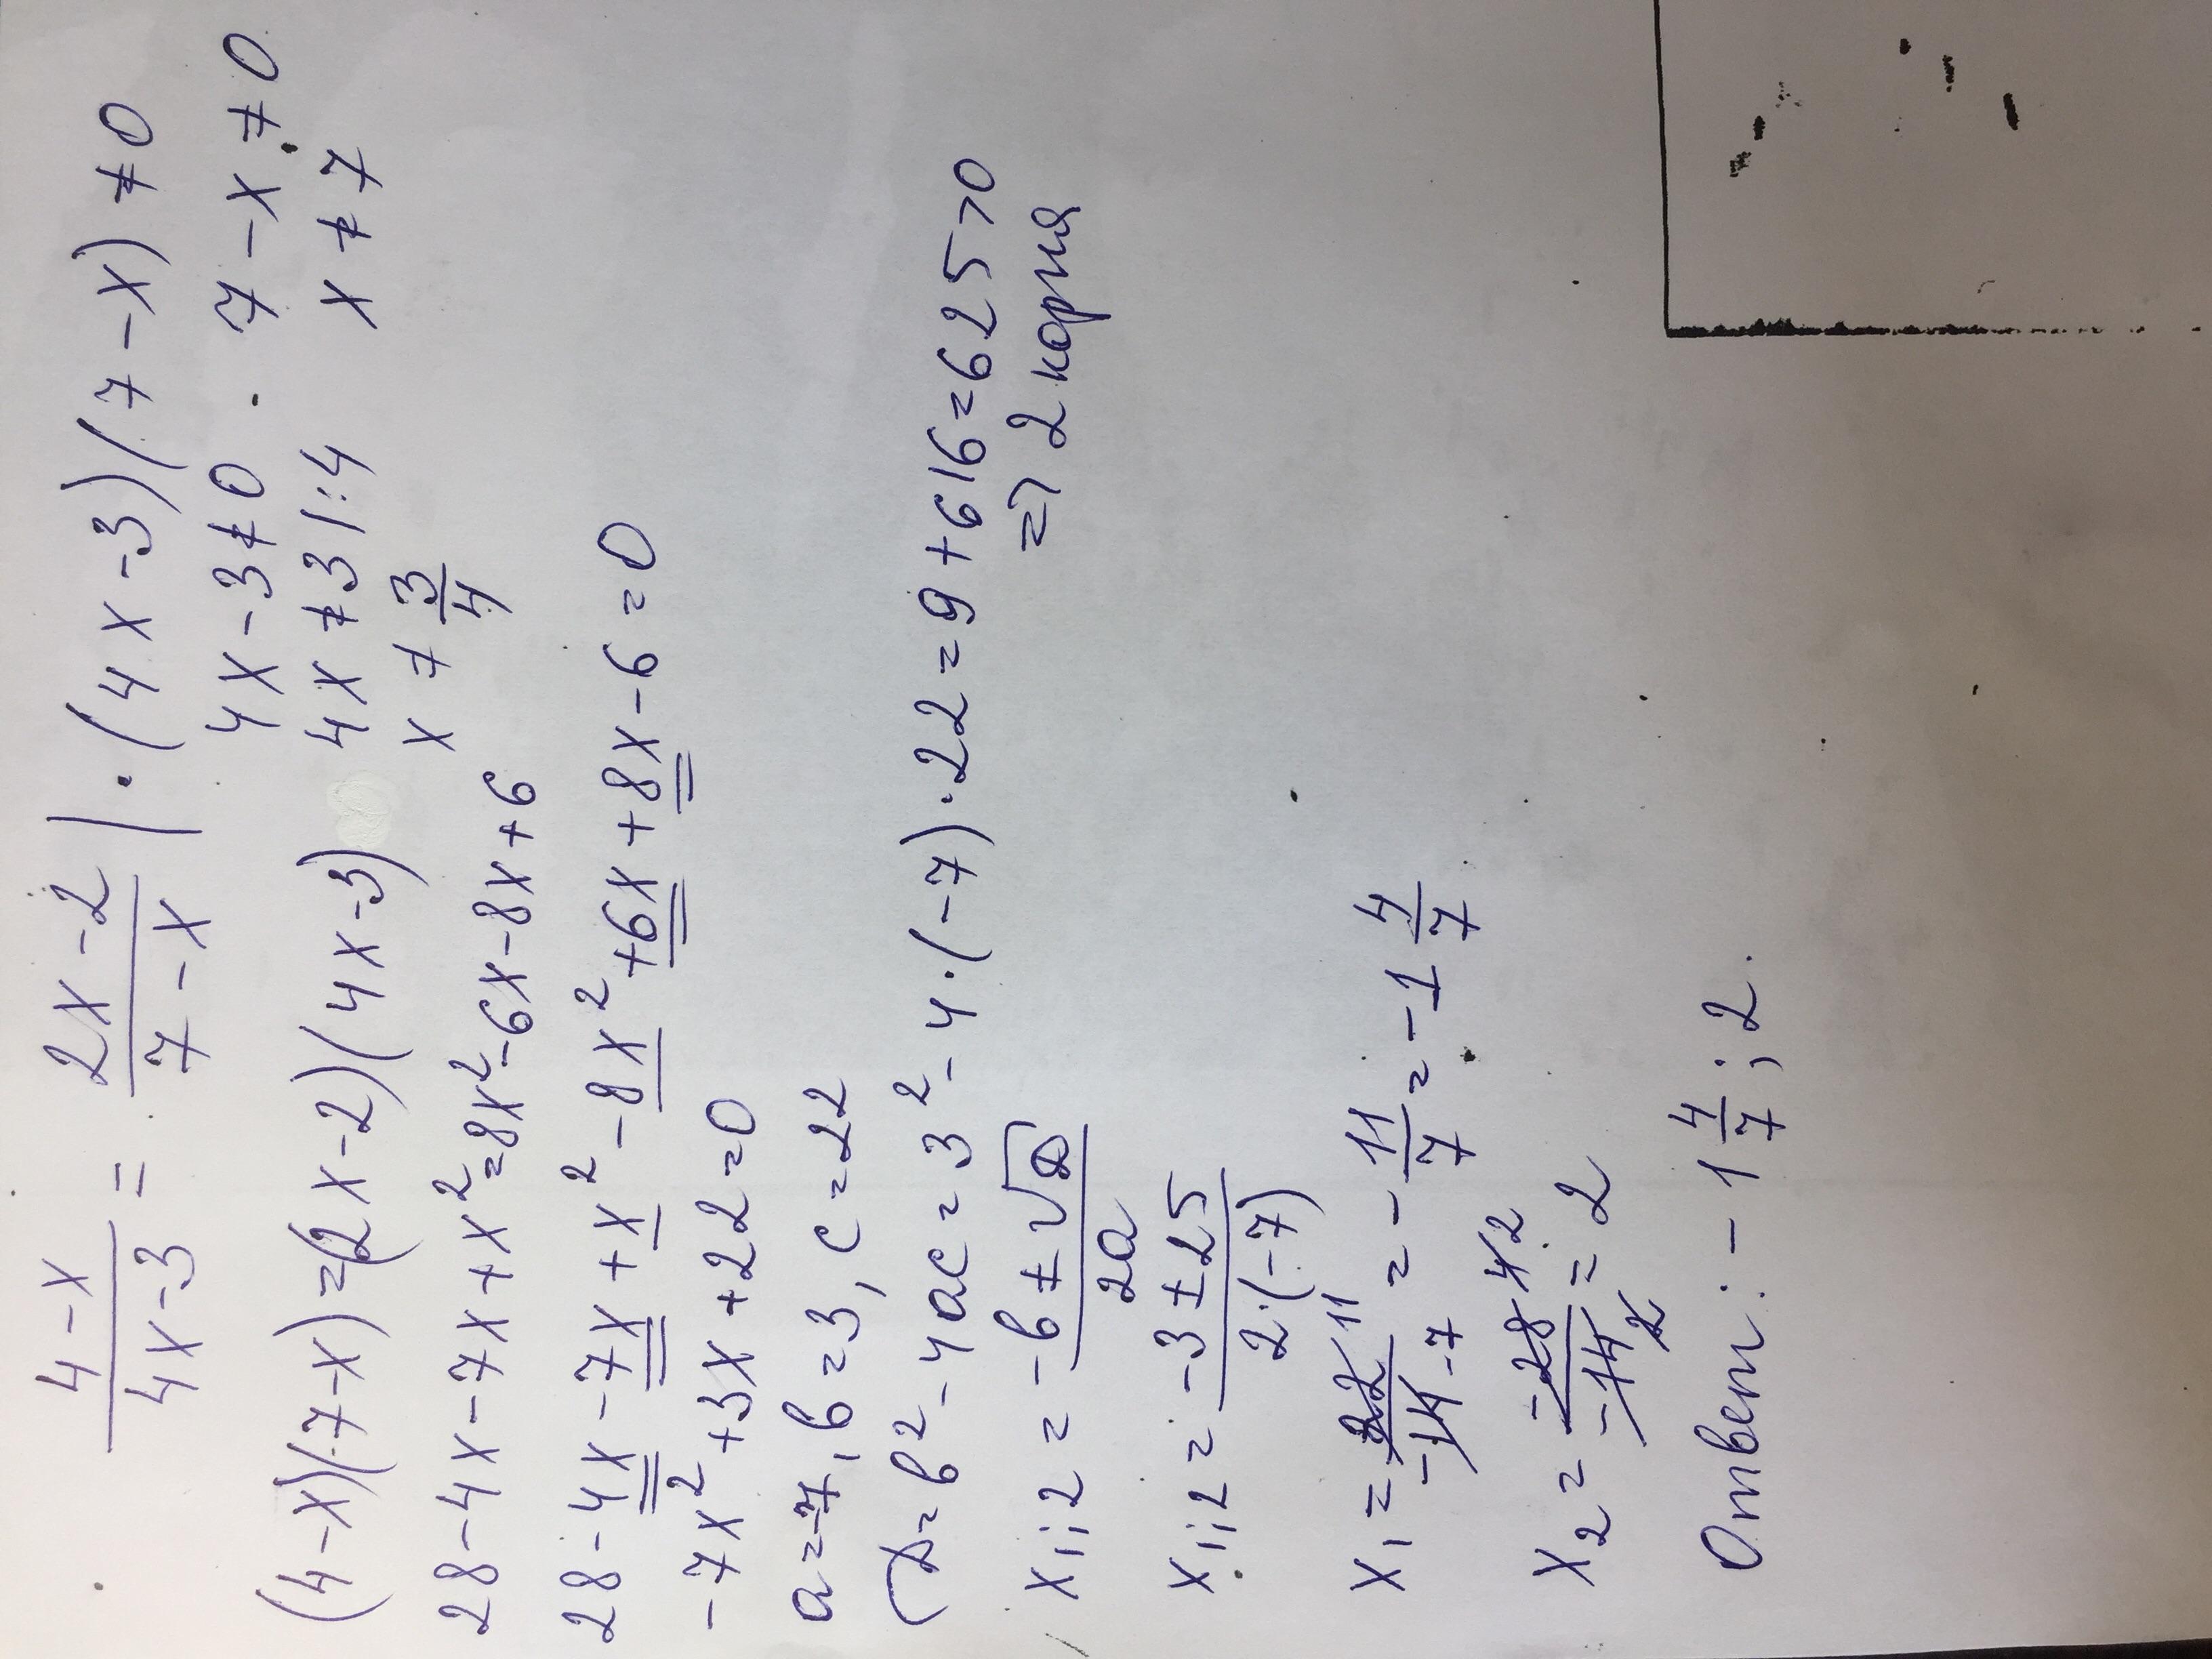 (4-x)/(4x-3) = (2x-2)/(7-x) | · (4x-3)(7-x) ≠ 0
4x-3≠0 7-x≠0
(4-x)(7-x)=(2x-2)(4x-3) 4x≠3 |:4 x≠7
x≠3/4
28-4x-7x+x²=8x²-6x-8x+6
28-4x-7x+x²-8x²+6x+8x-6=0
-7x²+3x+22=0
a=-7, b=3, c=22
D=b²-4ac=3²-4·(-7)·22=9+616=625>0
=> 2 корня
x₁;₂ = (-b±√D)/(2a)
x₁;₂ = (-3±25)/(2·(-7))
x₁ = 22 11/-14 -7 = -11/7 = -1 4/7
x₂ = -28 4 2/-14 2 = 2
Ответ: -1 4/7; 2.